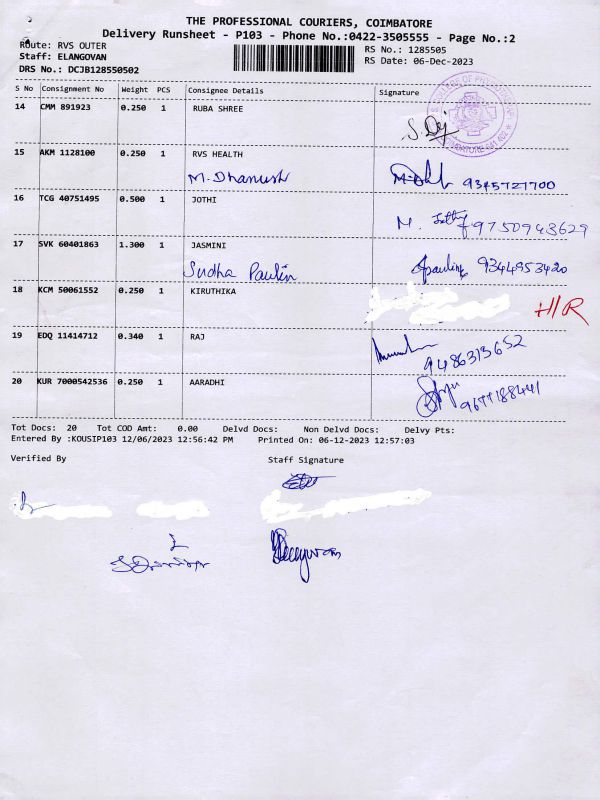 THE PROFESSIONAL COURIERS, COIMBATORE
Delivery Runsheet - P103 - Phone No.:0422-3505555 - Page No.:2
Route: RVS OUTER RS No.: 1285505
Staff: ELANGOVAN RS Date: 06-Dec-2023
DRS No.: DCJB128550502
S No Consignment No Weight PCS Consignee Details Signature
14 CMM 891923 0.250 1 RUBA SHREE
15 AKM 1128100 0.250 1 RVS HEALTH
M. Dhanush 9345727700
16 TCG 40751495 0.500 1 JOTHI
M. 9750943629
17 SVK 60401863 1.300 1 JASMINI
Sudha Paulin 9344953420
18 KCM 50061552 0.250 1 KIRUTHIKA
H/R
19 EDQ 11414712 0.340 1 RAJ
9486313652
20 KUR 7000542536 0.250 1 AARADHI
Tot Docs: 20 Tot COD Amt: 0.00 Delvd Docs: Non Delvd Docs: Delvy Pts:
Entered By :KOUSIP103 12/06/2023 12:56:42 PM Printed On: 06-12-2023 12:57:03
Verified By Staff Signature